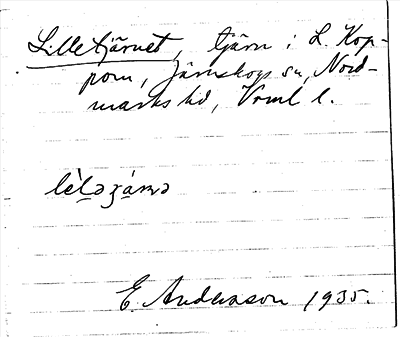 Lilletjärnet, tjärn i L. Kop-
pom, Järnskogs sn, Nord-
marks hd, Vrml l.
lìl̯əʒà̯mə
E. Andersson 1935.